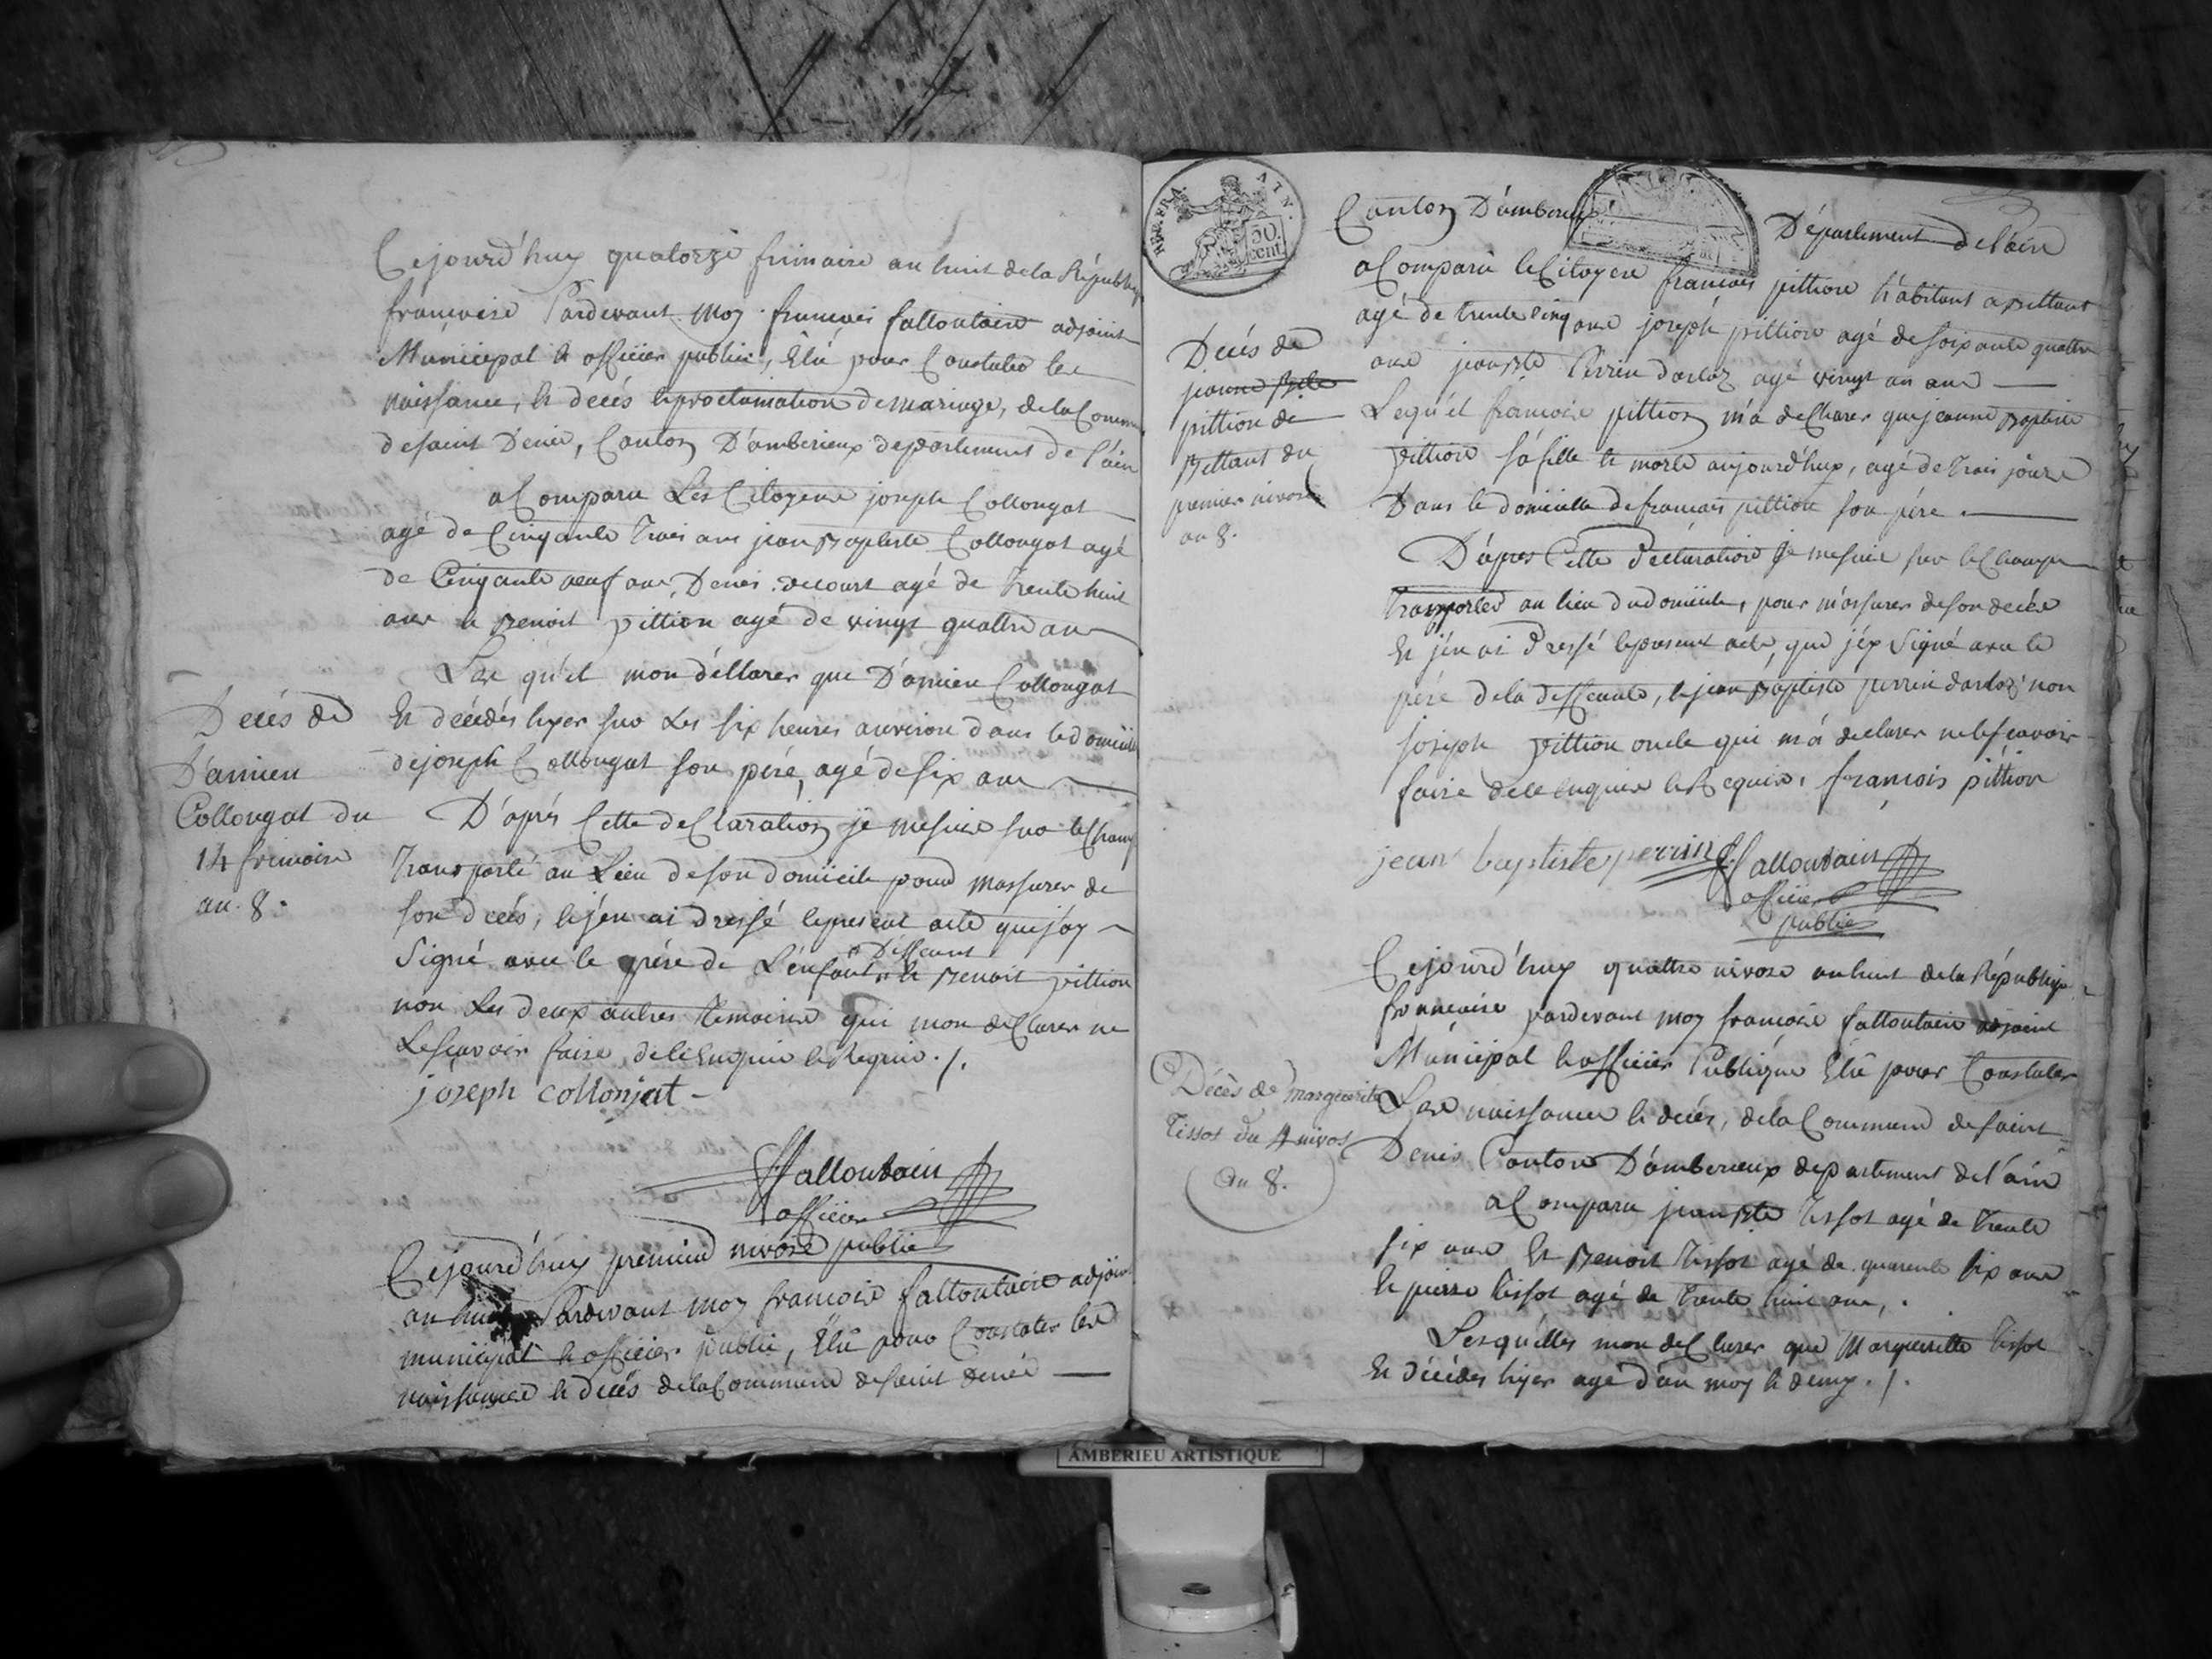 Cejourd'huy quatorze frimaire an huit de la Républiq
francoise Pardevant Moy francois fallontaire adjoint
Municipal & officier public, Elu pour Constater les
naissance, & décés & proclamation de mariage, de la Commu
de saint Denis, Canton D'amberieux departement de l'ain
a Comparu Les Citoyens joseph Collongat
agé de Cinquante Trois ans jean Baptiste Collongat agé
de Cinquante neuf ans, Denis decourt agé de Trente huit
ans & Benoit pittion agé de vingt quattre ans
Les qu'el mon déClarer que Damien Collongat
Et décédés hyer sur Les six heures anvirons dans le domicille
de joseph Collongat son pére, agé de six ans
D'aprés Cette deClaration je me suis sur le Champ
Transporté au Lieu de son domicile pour massurer de
son decés, & j'en ai dressé le present acte que jay
Deffeunt
Signé avec le pére de L'enfant & Benoit pittion
non Les deux autres Temoins qui mon deClarer ne
Lesçavoir faire, de ce Enquis & Requis ./.
joseph collonjat -
ffallontain
officier
public
Decés de
Damien
Collongat du
14 frimaire
an 8.
Cejourd'huy premier nivose
an huit Pardevant moy francois fallontaire adjoin
municipal & officier public, Elu pour Constater les
naissance & decés de la Commune de saint denis
REP. FRA. AIN.
50. cent
Canton D'amberieux
Département de l'ain
a Comparu le Citoyen francois pittion habitant a Bettant
agé de trente cinq ans joseph pittion agé de soixante quattre
ans jean Bte Perrin darloz agé vingt un ans
Lequ'el francois pittion m'a deClarer que jeanne Baptiste
pittion sa fille & morte aujourd'huy, agé de trois jours
Dans le domicille de francois pittion son pére.
D'apres Cette Déclaration je me suis sur le Champ
Transporter au lieu du domicile, pour m'assurer de son decés
Et j'en ai dressé le present acte, que j'ey Signé avec le
pére de la deffeunte, & jean Baptiste perrin darloz non
joseph pittion oncle qui m'a declarer ne le sçavoir
faire de ce enquis & Requis. francois pittion
jean baptiste perrin ffallontain
officier
public
Decés de
jeanne Bte
pittion de
Bettant du
premier nivose
an 8.
Cejourd'huy quattre nivose an huit de la Républiqu
francaise pardevant moy francois fallontain adjoint
Municipal & officier Publique Elu pour Constater
Les naissance & decés, de la Commune de saint
Denis Canton D'amberieux departement de l'ain
a Comparu jean Bte Tissot agé de trente
six ans Et Benoit Tissot agé de quarente six ans
& pierre tissot agé de trente huit ans,.
Lesqu'elles mon deClarer que Margueritte tissot
Et décédés hyer agé d'un moy & demy ./.
Décès de marguerite
Tissot du 4 nivos
an 8.
AMBERIEU ARTISTIQUE